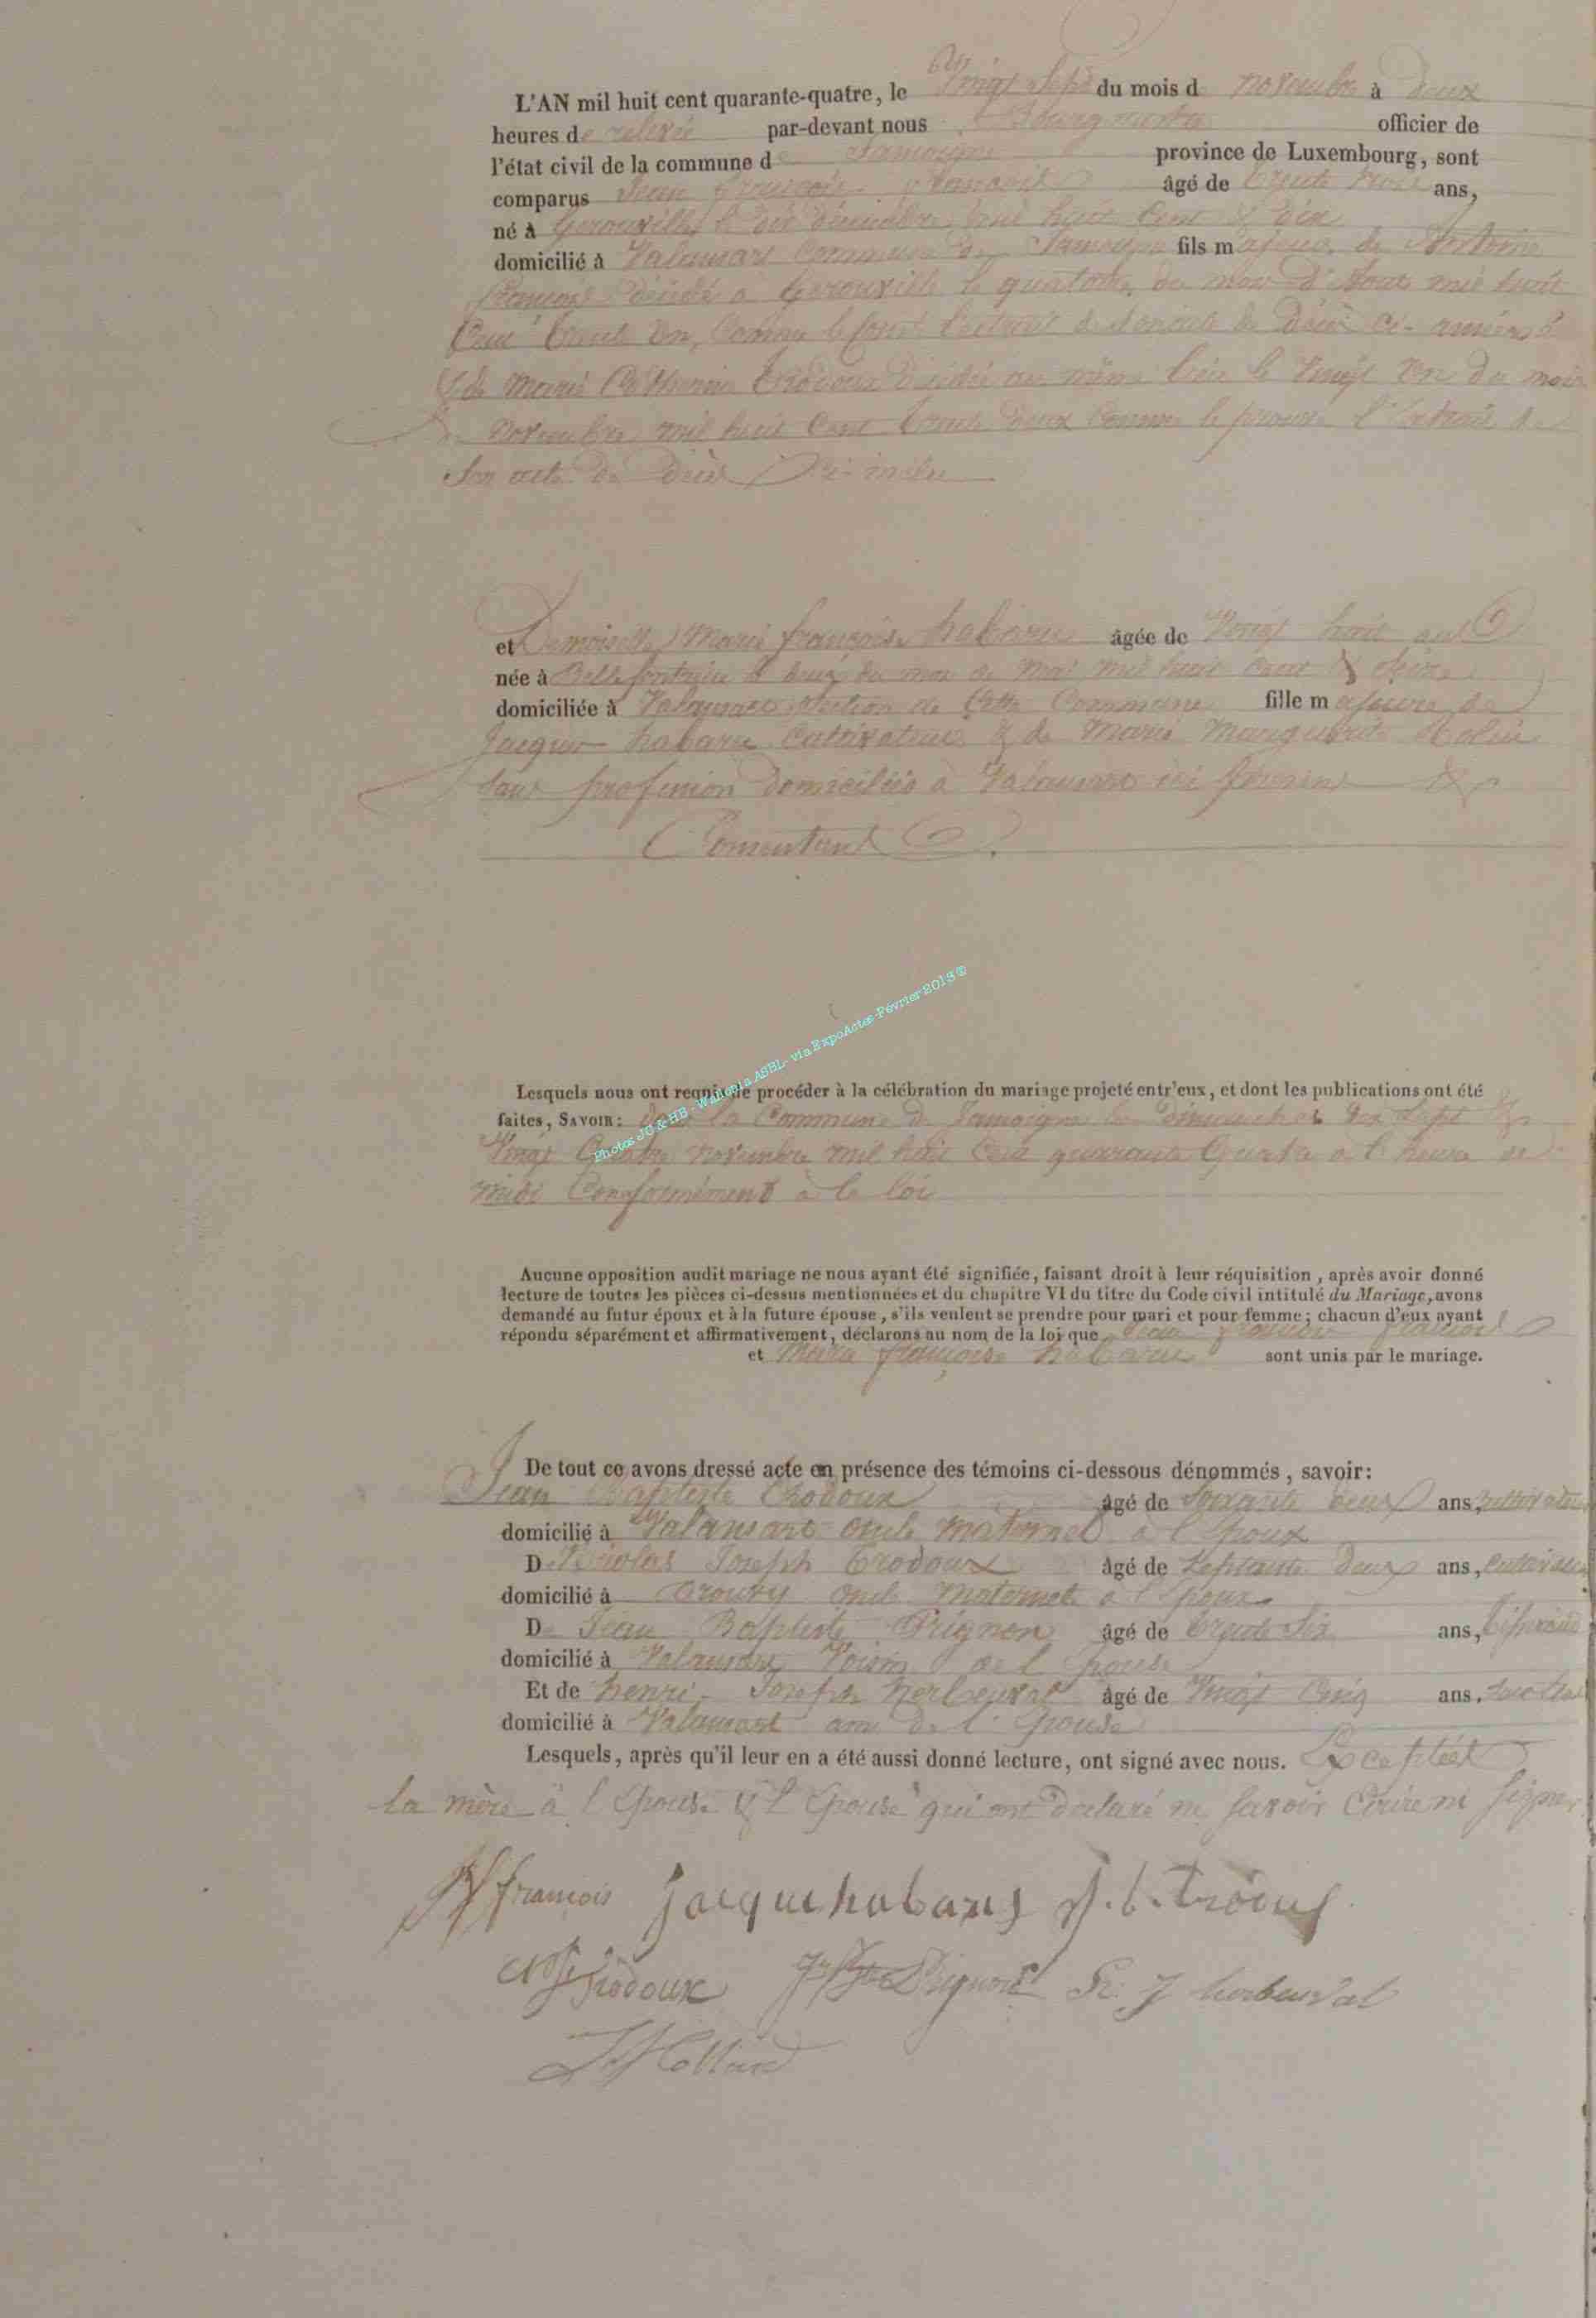 L'AN mil huit cent quarante-quatre, le Vingt Sept du mois de novembre à deux
heures de relevée par-devant nous Bourgmestre officier de
l'état civil de la commune de Jamoigne province de Luxembourg, sont
comparus Jean françois françois âgé de trente trois ans,
né à Gerouville le dix décembre mil huit Cent & dix
domicilié à Valansart Commune de Jamoigne fils majeur de Antoine
françois décédé a Gerouville le quatorze du mois d'Aout mil huit
Cent trente un, Comme le l'extrait de de Décès ci-annexé
& de Marie Catherine Trodoux décédée au même lieu le Vingt un du mois
de Novembre mil huit Cent trente deux Comme le prouve l'Extrait de
Son acte de Décès
et Demoiselle Marie françoise habaru âgée de Vingt huit ans
née à Bellefontaine le deux du mois de Mai mil huit Cent & Seize
domiciliée à Valansart Section de Cette Commune fille majeure de
Jacques habaru Cultivateur & de Marie Marguerite
Sans profession domiciliés à Valansart ici présens &
Consentant
Lesquels nous ont requis de procéder à la célébration du mariage projeté entr'eux, et dont les publications ont été
faites, SAVOIR: dans la Commune de Jamoigne les dimanches dix Sept &
Vingt Quatre novembre mil huit Cent quarante Quatre a l'heure de
midi Conformément à la loi
Aucune opposition audit mariage ne nous ayant été signifiée, faisant droit à leur réquisition, après avoir donné
lecture de toutes les pièces ci-dessus mentionnées et du chapitre VI du titre du Code civil intitulé du Mariage, avons
demandé au futur époux et à la future épouse, s'ils veulent se prendre pour mari et pour femme; chacun d'eux ayant
répondu séparément et affirmativement, déclarons au nom de la loi que Jean françois françois
et Marie françoise habaru sont unis par le mariage.
De tout ce avons dressé acte en présence des témoins ci-dessous dénommés, savoir:
Jean Baptiste Trodoux âgé de Soixante deux ans, cultivateur
domicilié à Valansart oncle maternel a l'Epoux
De Nicolas Joseph Trodoux âgé de Septante deux ans, cultivateur
domicilié à oncle Maternel a l'Epoux
De Jean Baptiste Prignon âgé de trente Six ans, tisserand
domicilié à Valansart Voisin de l'Epouse
Et de henri Joseph herbeuval âgé de Vingt Cinq ans,
domicilié à Valansart ami de l'Epouse
Lesquels, après qu'il leur en a été aussi donné lecture, ont signé avec nous. Exceptées
la mère à l'Epouse & l'Epouse qui ont déclaré ne Savoir Ecrire ni Signer
françois Jacque habaru J. b. trodoux
Trodoux Prignon h. J herbeuval
Photos JG & HB - Wallonia ASBL - via ExpoActes-Février 2013 ©